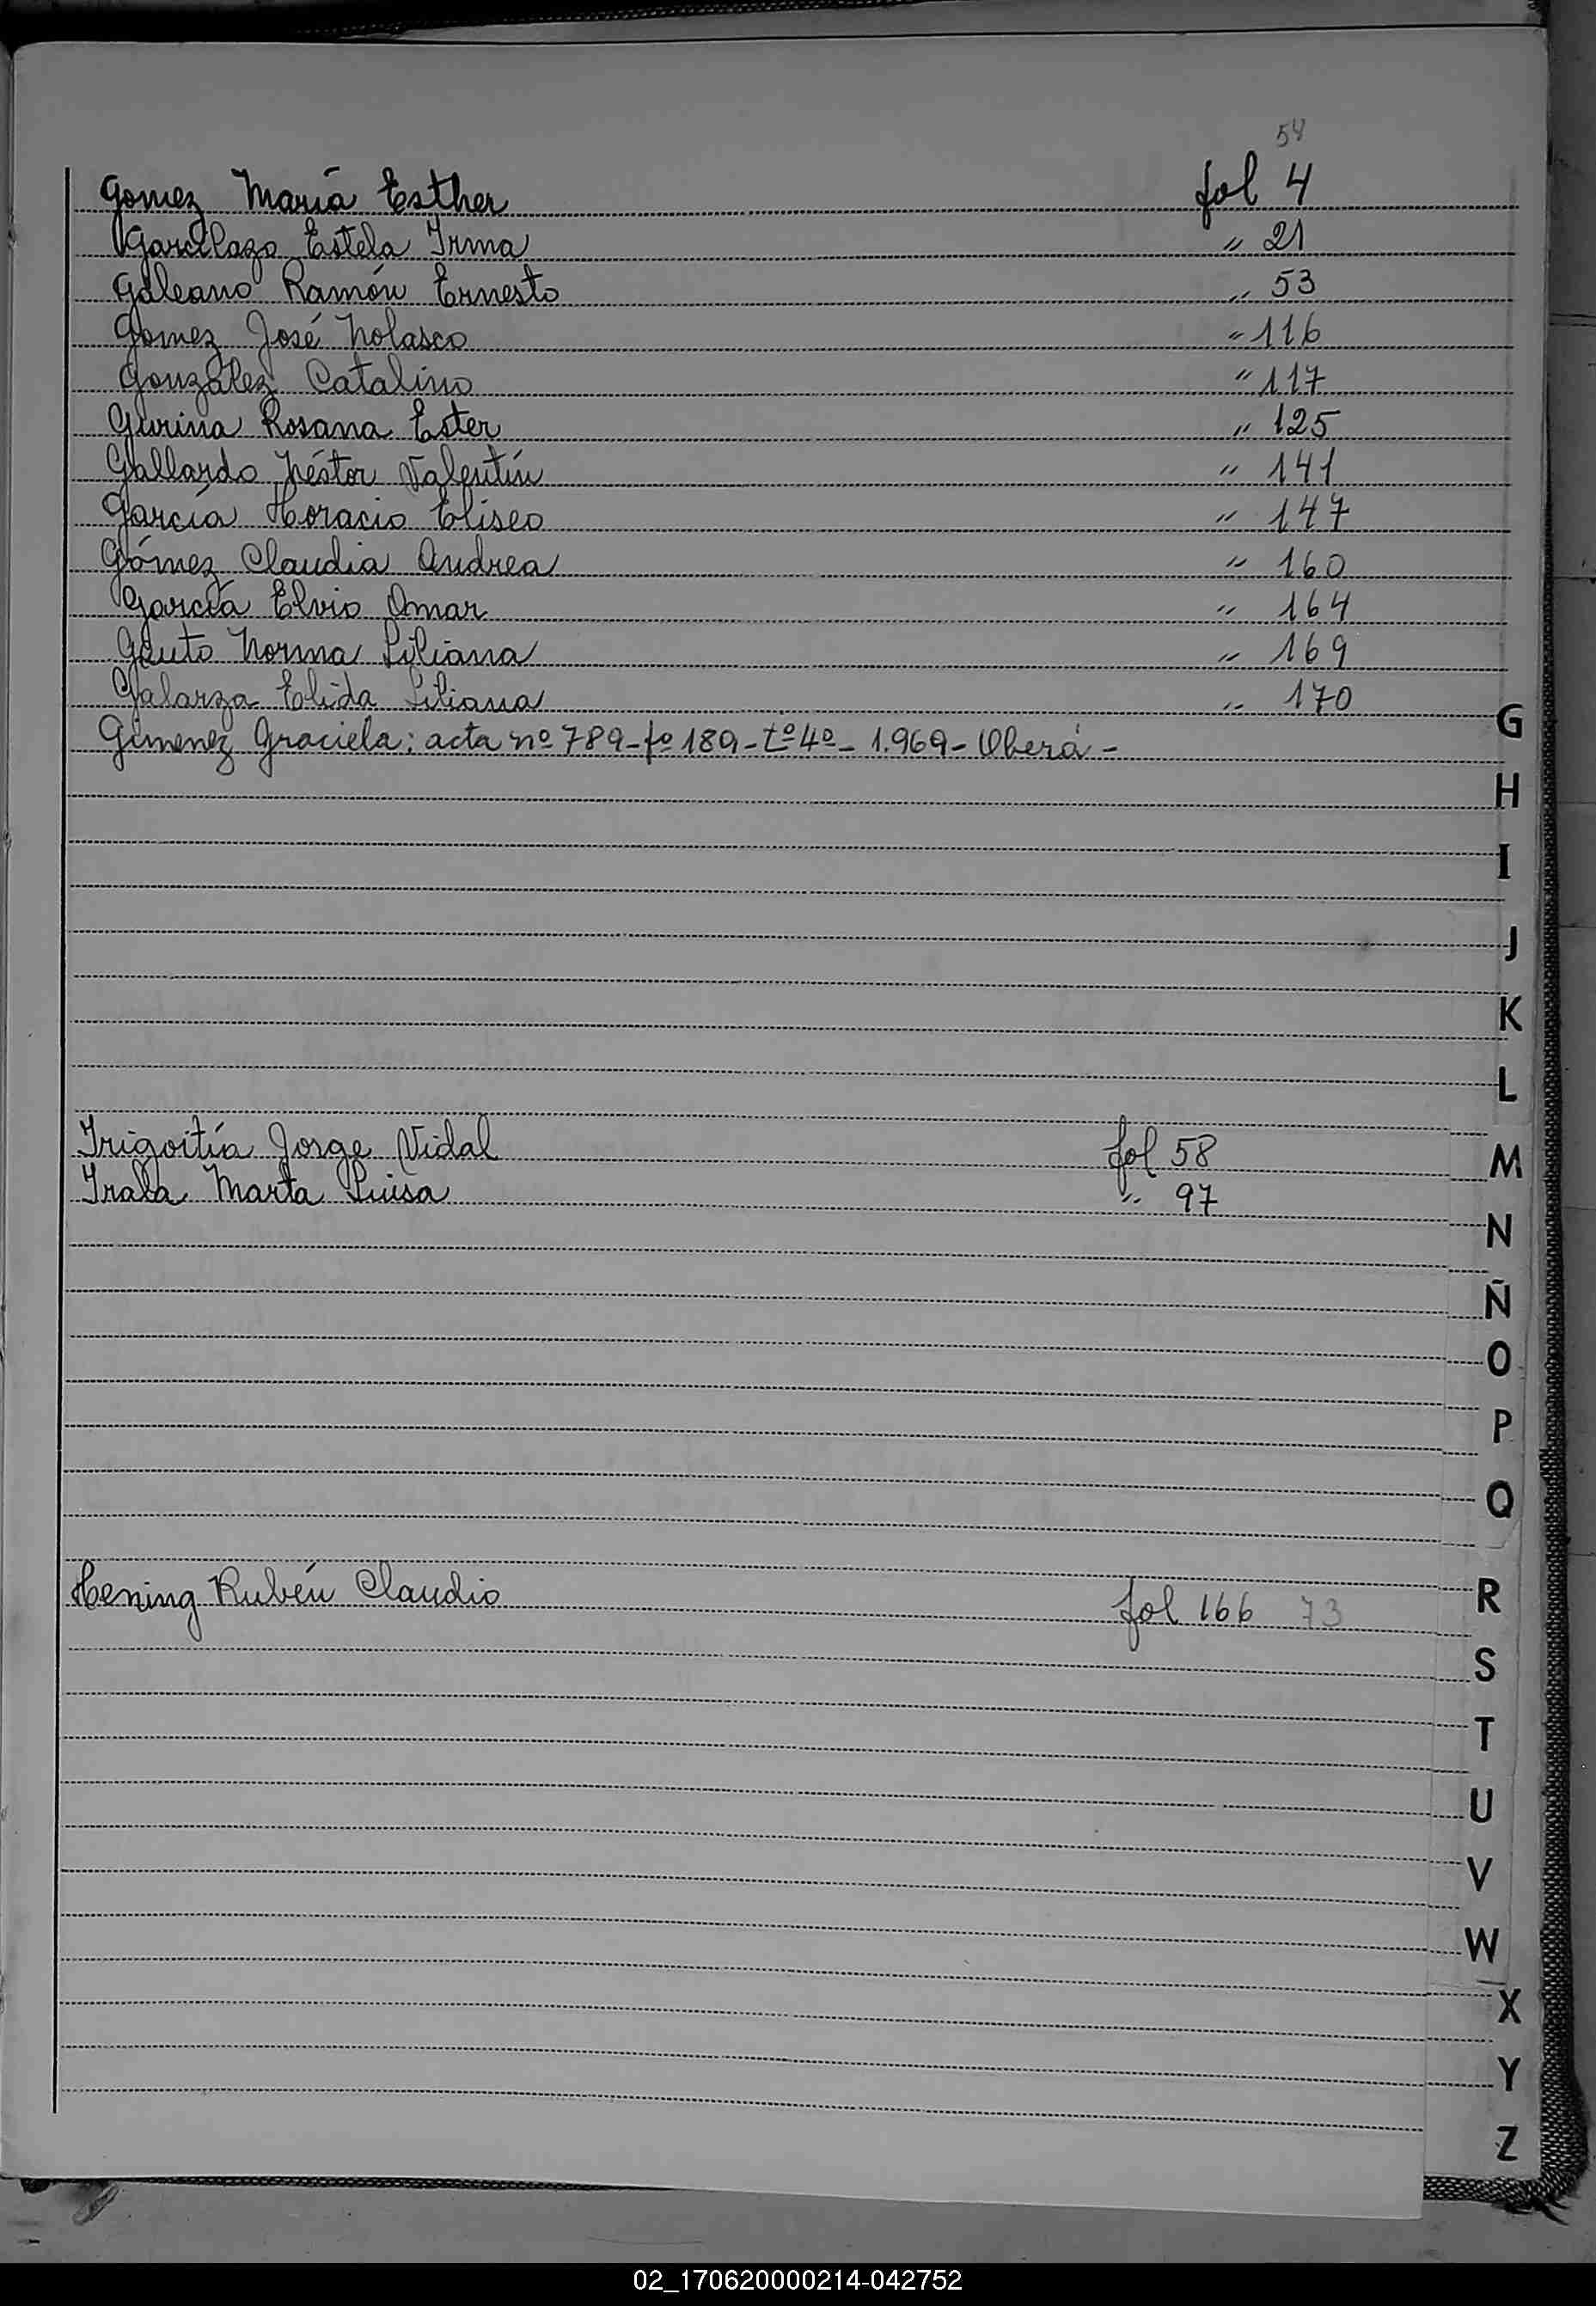 54
Gomez María Esther fol 4
Garcilazo Estela Irma " 21
Galeano Ramón Ernesto " 53
Gomez José Nolasco " 116
González Catalino " 117
Gurina Rosana Ester " 125
Gallardo Néstor Valentín " 141
García Horacio Eliseo " 147
Gómez Claudia Andrea " 160
García Elvio Omar " 164
Gauto Norma Liliana " 169
Galarza Elida Liliana " 170
Gimenez Graciela: acta nº 789-fº 189-tº 4º- 1.969- Oberá-
G
H
I
J
K
L
Irigoitía Jorge Vidal fol 58
Irala Marta Luisa " 97
M
N
Ñ
O
P
Q
Hening Rubén Claudio fol 166 73
R
S
T
U
V
W
X
Y
Z
02_170620000214-042752